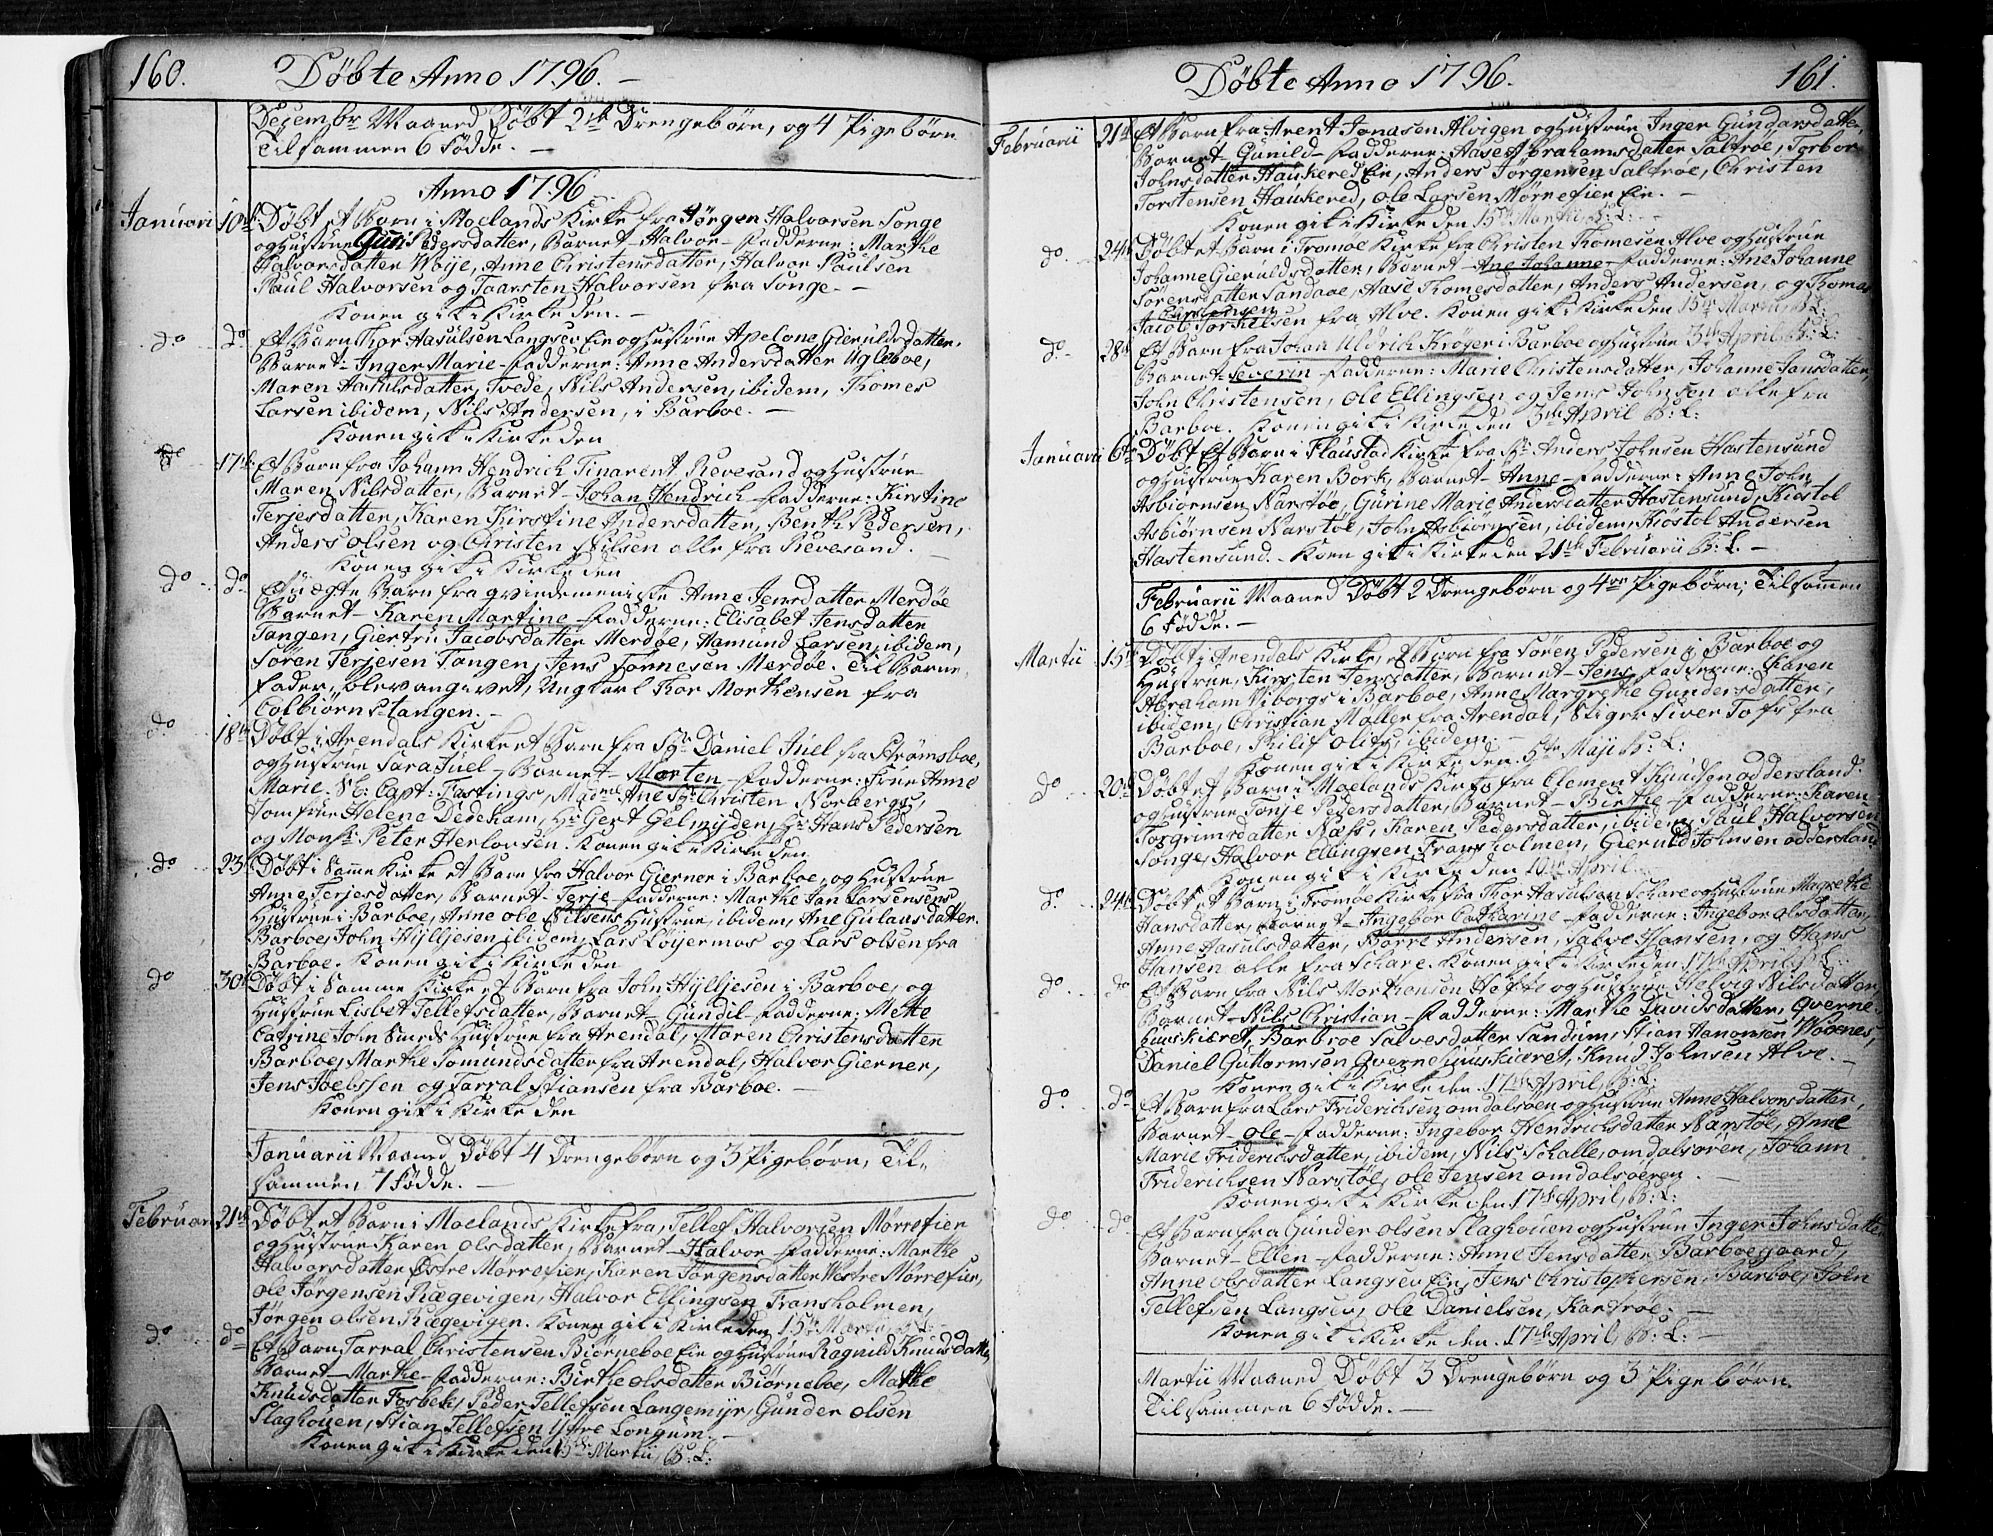 160. Döbte Anno 1796. —
Decembr Maaned Döbt 2de Drengebörn, og 4 Pigebörn
Tilsammen 6 Födde. —
Anno 1796
Januari 10de Döbt et Barn i Moelands Kirke fra Jörgen Halvorsen Songe
og Hustrue Guri Pedersdatter, Barnet - Halvor - Fadderne: Marthe
Halvorsdatter Woije, Anne Christensdatter, Halvor Paulsen
Paul Halvorsen og Taarsten Halvorsen fra Songe. —
Konen gik i Kirke den. —
do do Et Barn Thor Aasulsen Langsev Eie og Hustrue Apelone Gieruldsdatter,
Barnet - Inger Marie - Fadderne: Anne Andersdatter Ugleboe,
Maren Aasulsdatter, Tvede, Nils Andersen, ibidem, Thomes
Larsen ibidem, Nils Andersen, i Barboe. —
Konen gik i Kirke den
do 17de Et Barn fra Johann Hendrich Tinarent Revesand og Hustrue
Maren Nilsdatter, Barnet - Johan Hendrich - Fadderne: Kirstine
Terjesdatter, Karen Kirstine Andersdatter, Benth Pedersen,
Anders Olsen og Christen Nilsen alle fra Revesand. —
Konen gik i Kirke den
do do Et uægte Barn fra Qvindemeniske Anne Jensdatter Merdöe
Barnet - Karen Martine - Fadderne: Elisabet Jensdatter
Tangen, Giertru Jacobsdatter Merdöe, Aamund Larsen, ibidem,
Sören Terjesen Tangen, Jens Tönnesen Merdöe. Til Barne-
fader, blev angivet, Ungkarl Thor Morthensen fra
Colbiörns-tangen. —
do 18de Döbt i Arendals Kirke et Barn fra Sr. Daniel Juel fra Strömsboe,
og Hustrue Sara Juel - Barnet - Morten - Fadderne: Frue Anne
Marie Sl: Capt: Fastings, Madme Ane Sr. Christen Norbergs,
Jomfrue Helene Dedekam, Hr Gert Gelmyden, Hr Hans Pedersen
og Monsr. Peter Herlovsen. Konen gik i Kirke den
do 23de Döbt i Samme Kirke et Barn fra Halvor Gierner i Barboe, og Hustrue
Anne Terjesdatter, Barnet - Terje - Fadderne: Marthe Jan Larsensens
Hustrue i Barboe, Anne Ole Nilsens Hustrue, ibidem, Ane Gulausdatter
Barboe, John Hylljesen ibidem, Lars Löyermos og Lars Olsen fra
Barboe. Konen gik i Kirke den
do 30de Döbt i Samme Kirke et Barn fra John Hylljesen i Barboe, og
Hustrue Lisbet Tellefsdatter, Barnet - Gundil - Fadderne: Mette
Catrine John Smeds Hustrue fra Arendal, Maren Christensdatter
Barboe, Marthe Tomundsdatter fra Arendal, Halvor Gierner,
Jens Joelssen og Tarral Stiansen fra Barboe. —
Konen gik i Kirke den
Januarii Maaned Döbt 4 Drengebörn og 3 Pigebörn, Til-
sammen 7 Födde. —
Februar 21de Döbt et Barn i Moelands Kirke fra, Tellef Halvorsen Mörrefier
og Hustrue Karen Olsdatter, Barnet - Halvor - Fadderne: Marthe
Halvorsdatter Östre Mörrefier, Karen Jörgensdatter Westre Mörrefier,
Ole Jörgensen Rægevigen, Halvor Ellingsen Fransholmen,
Jörgen Olsen Rægevigen. Konen gik i Kirke den 15de Martii B: L:
do. do Et Barn Tarral Christensen Biörneboe Eie og Hustrue Ragnild Knudsdatter
Barnet - Marthe - Fadderne: Birthe Olsdatter Biörneboe, Marthe
Knudsdatter Fosbek, Peder Tellefsen Langemyr, Gunder Olsen
Slaghouen, Stian Tellefsen Yttre Longum. —
Konen gik i Kirke den 15de Martii, B: L:
Döbte Anno 1796. 161.
Februarii 21de Et Barn fra Arent Jonasen Alvigen og Hustrue Inger Gundersdatter
Barnet - Gunild - Fadderne: Aase Abrahamsdatter Saltroe, Torbor
Johnsdatter Haukered Eie, Anders Jörgensen Saltröe, Christen
Torstensen Haukered, Ole Larsen Mörrefier Eie. —
Konen gik i Kirke den 15de Martii B: L: —
do. 24de Döbt et Barn i Tromöe Kirke fra Christen Thomesen Alve og Hustrue
Johanne Gieruldsdatter, Barnet - Ane Johanne - Fadderne: Ane Johanne
Sörensdatter Sandaae, Aase Thomesdatter, Anders Andersen, og Thomas
Carstensen
Jacob Torkelsen fra Alve. Konen gik i Kirke den 15de Martii, B: L:
do. 28de Et Barn fra Johan Uldrich Kröger i Barboe og Hustrue 3de April B: L:
Barnet - Severin - Fadderne: Marie Christensdatter, Johanne Jansdatter,
John Christensen, Ole Ellingsen og Jens Johnsen alle fra
Barboe. Konen gik i Kirke den 3de April B: L:
Januarii 6te Döbt Et Barn i Flaustad Kirke fra Sr. Anders Johnsen Hastensund
og Hustrue Karen Bork, Barnet - Anne - Fadderne: Anne John
Asbiörnsen Narstöe, Gurine Marie Andersdatter Hastensund, Kiöstol
Asbiörnsen Narstöe, John Asbiörnsen, ibidem, Kiöstol Andersen
Hastensund. - Konen gik i Kirke den 21de Februarii B: L. —
Februarii Maaned Döbt 2 Drengebörn og 4re Pigebörn, Tilsammen
6 Födde. —
Martii 15de Döbt i Arendals Kirke, et Barn fra Sören Pedersen i Barboe og
Hustrue, Kirsten Jensdatter, Barnet - Jens - Fadderne: Karen
Abraham Viborgs i Barboe, Anne Margrethe Gundersdatter,
ibidem, Christian Moller fra Arendal, Stiger Siver Tofs fra
Barboe, Philip Olives, ibidem. —
Konen gik i Kirke den. 5te Maji B: L:
do 20de Döbt et Barn i Moelands Kirke fra Clement Knudsen Addersland
og Hustrue Tonje Pedersdatter, Barnet - Birthe - Fadderne: Karen
Torgrimsdatter Næss, Karen Pedersdatter, ibidem, Paul Halvorsen
Songe, Halvor Ellingsen Fransholmen, Gieruld Johnsen Addersland
Konen gik i Kirke den 10de April.
do. 24de Döbt et Barn i Tromöe Kirke fra Thor Aasulsen Skare og Hustrue Magrethe
Hansdatter, Barnet - Ingebor Catharine - Fadderne: Ingebor Olsdatter,
Anne Aasulsdatter, Börre Andersen, Salve Hansen, og Hans
Hansen alle fra Schare. Konen gik i Kirke den 17de April B: L:
do. do Et Barn fra Nils Morthensen Hefte og Hustrue Helvig Nilsdatter,
Barnet - Nils Christian - Fadderne: Marthe Davidsdatter, Qverne-
huuskieret, Barbroe Salvesdatter Sandum, Stian Aanonsen Woxnes,
Daniel Guttormsen Qvernehuuskieret, Knud Johnsen Alve. —
Konen gik i Kirke den. 17de April, B: L:
do. do Et Barn fra Lars Friderichsen Omdalsöen og Hustrue Anne Halvorsdatter,
Barnet - Ole - Fadderne: Ingebor Hendrichsdatter Narstöe, Anne
Marie Friderichsdatter, ibidem, Nils Schalle, Omdalsören, Johann
Friderichsen Narstöe, Ole Jensen Omdalsöeren. —
Konen gik i Kirke den. 17de April, B: L:
do. do Et Barn fra Gunder Olsen Slaghouen og Hustrue Inger Johnsdatter
Barnet - Ellen - Fadderne: Anne Jensdatter Barboegaard,
Anne Olsdatter Langsev Eie, Jens Christophersen, Barboe, John
Tellefsen Langsev, Ole Danielsen, Karfröe. —
Konen gik i Kirke den. 17de April, B: L: —
Martii Maaned Döbt 3 Drengebörn og 3 Pigebörn.
Tilsammen 6 Födde. —